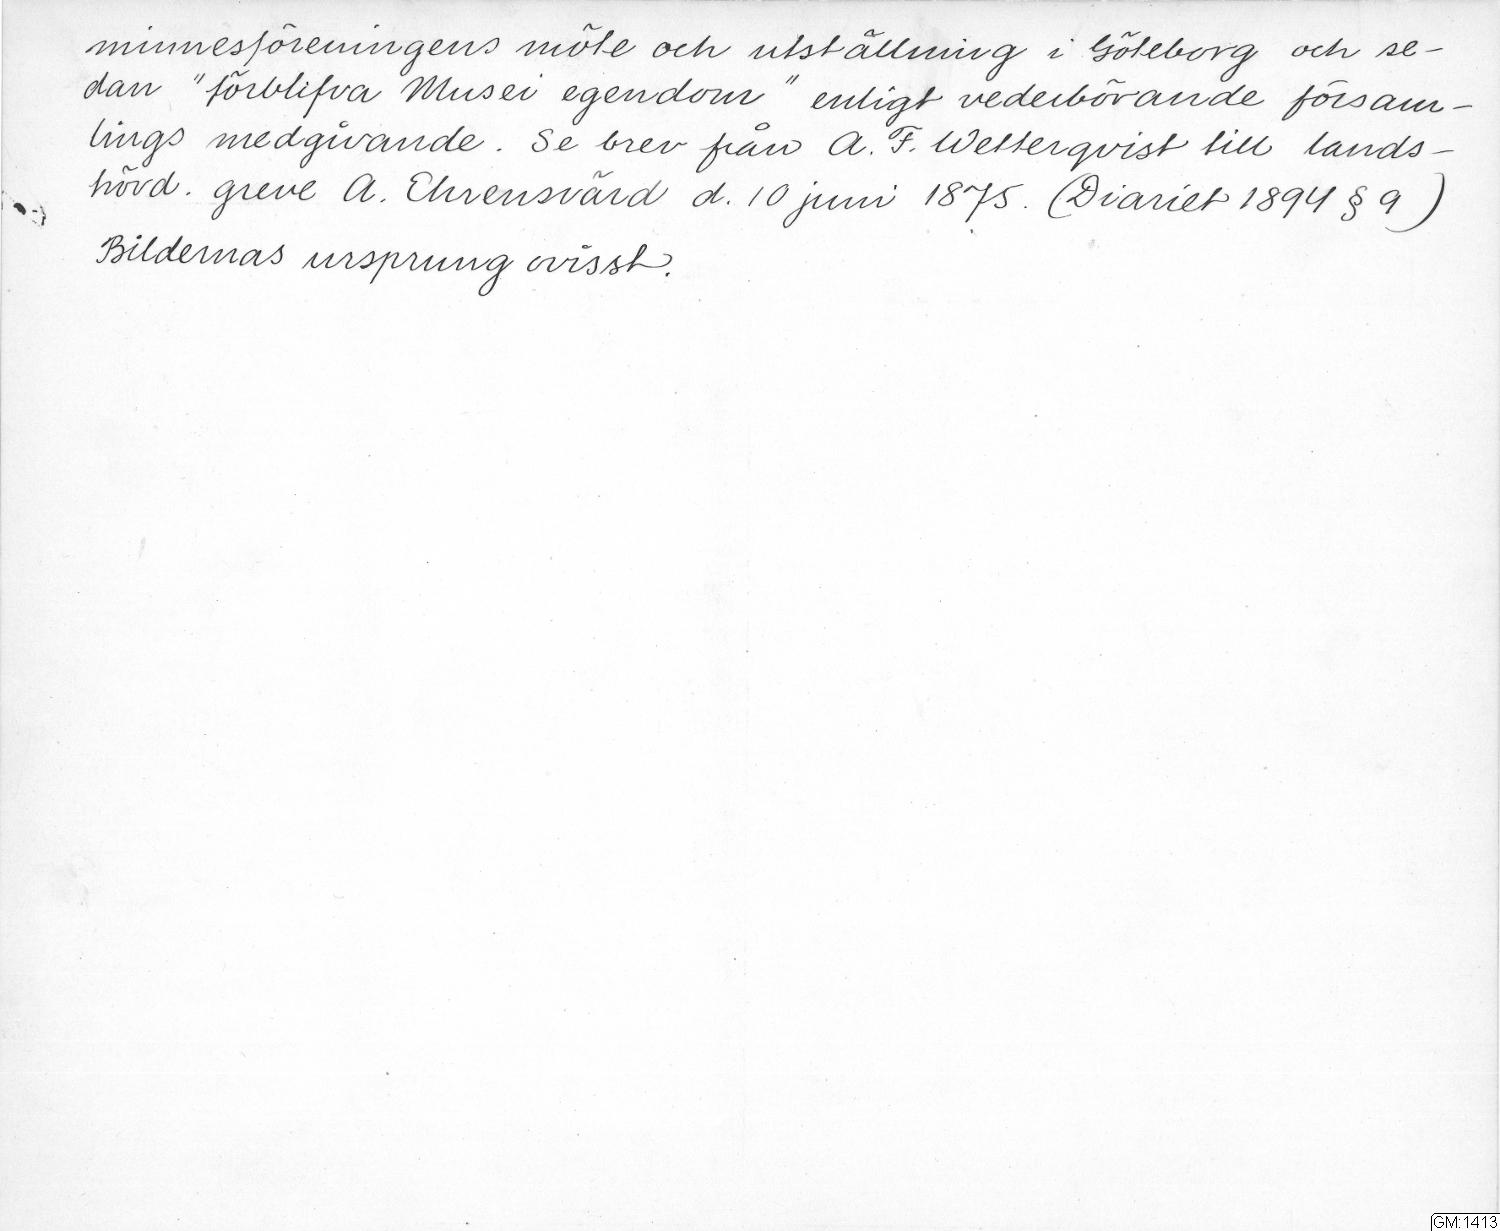 minnesföreningens möte och utställning i Göteborg och se-
dan "förblifva Musei egendom" enligt vederbörande försam-
lings medgivande. Se brev från A. F. Wetterqvist till lands-
hövd. greve A. Ehrensvärd d. 10 juni 1875. (Diariet 1894 § 9)
Bildernas ursprung ovisst.
GM:1413